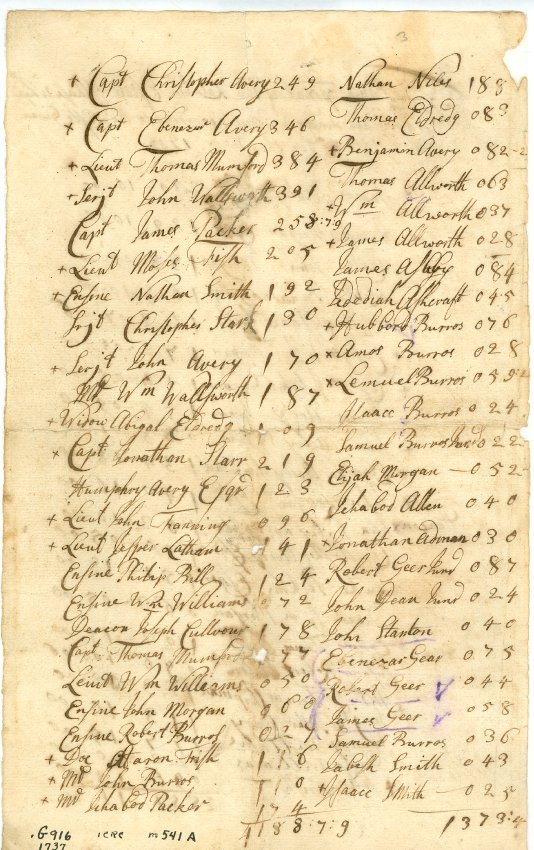 3
+ Capt Christopher Avery 2 4 9
+ Capt Ebenezer Avery 3 4 6
+ Lieut Thomas Mumford 3 8 4
+ Serjt John Wallsworth 3 9 1
Capt James Packer 2 5 8:7:9
+ Lieut Moses Fish 2 0 5
+ Ensine Nathan Smith 1 9 2
Srjt Christopher Starr 1 3 0
+ Serjt John Avery 1 7 0
Mr Wm Wallsworth 1 8 7
+ Widow Abigal Eldredg 1 0 9
+ Capt Jonathan Starr 2 1 9
Humphry Avery Esqr 1 2 3
+ Lieut John Fanning 0 9 6
+ Lieut Jesper Latham 1 4 1
Ensine Philip Bill 1 2 4
Ensine Wm Williams 0 7 2
Deacon Joseph Cullvour 1 7 8
Capt Thomas Mumford
Leiut Wm Williams 0 5 0
Ensine John Morgan 0 6
Ensine Robert Burros 0 2
+ Doc Aaron Fish 1 1 6
+ Mr John Burros 1 1 0
+ Mr Ichabod Packer 1 7 4
4188:7:9
Nathan Niles 1 8
Thomas Eldredg 0 8 3
+ Benjamin Avery 0 8 2 - 2
Thomas Allworth 0 6 3
+ Wm Allworth 0 3 7
+ James Allworth 0 2 8
James Ashby 0 8 4
Jedediah Ashcraft 0 4 5
+ Hubbord Burros 0 7 6
x Amos Burros 0 2 8
x Lemuel Burros 0 5 9
Isaace Burros 0 2 4
Samuel Burros Jund 0 2 2
Elijah Morgan - 0 5 2
Ichabod Allen 0 4 0
+ Jonathan Adman 0 3 0
Robert Geer Jund 0 8 7
John Dean Jund 0 2 4
John Stanton 0 4 0
Ebenezar Gear 0 7 5
Robert Geer 0 4 4
James Geer 0 5 8
Samuel Burros 0 3 6
Jabesh Smith 0 4 3
+ Isaace Smith - 0 2 5
1373:4
.G916 ICRC m541A
1737